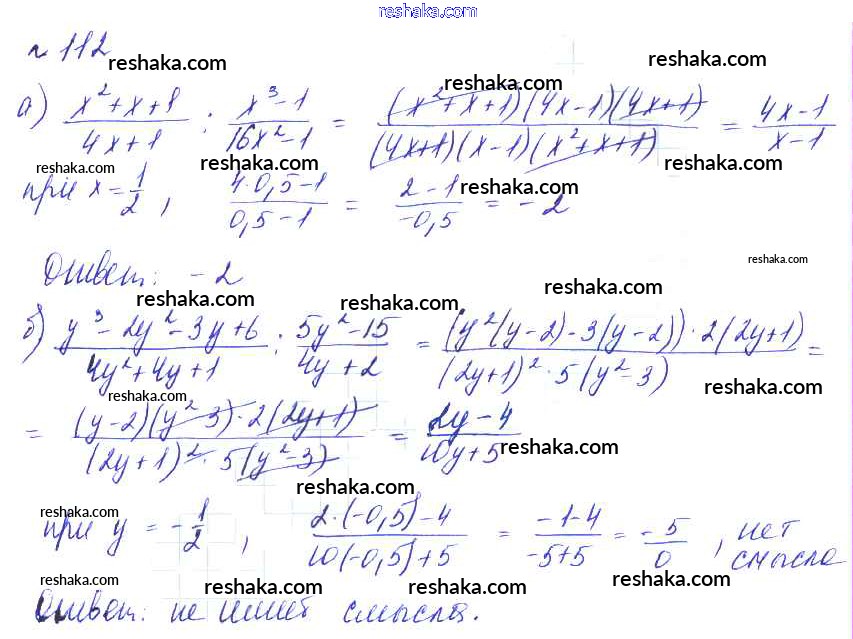 www.reshaka.com
№ 112
reshaka.com reshaka.com
а) (x²+x+1)/(4x+1) : (x³-1)/(16x²-1) = ((x²+x+1)(4x-1)(4x+1))/((4x+1)(x-1)(x²+x+1)) = (4x-1)/(x-1)
reshaka.com
reshaka.com reshaka.com reshaka.com
при x = 1/2, (4·0,5-1)/(0,5-1) = (2-1)/(-0,5) = -2
reshaka.com
reshaka.com
Ответ: -2
reshaka.com reshaka.com reshaka.com
б) (y³-2y²-3y+6)/(4y²+4y+1) : (5y²-15)/(4y+2) = ((y²(y-2)-3(y-2))·2(2y+1))/((2y+1)²·5(y²-3)) =
reshaka.com reshaka.com
= ((y-2)(y²-3)·2(2y+1))/((2y+1)²·5(y²-3)) = (2y-4)/(10y+5)
reshaka.com
reshaka.com
reshaka.com
при y = -1/2, (2·(-0,5)-4)/(10(-0,5)+5) = (-1-4)/(-5+5) = -5/0, нет смысла
reshaka.com reshaka.com reshaka.com reshaka.com
Ответ: не имеет смысла.